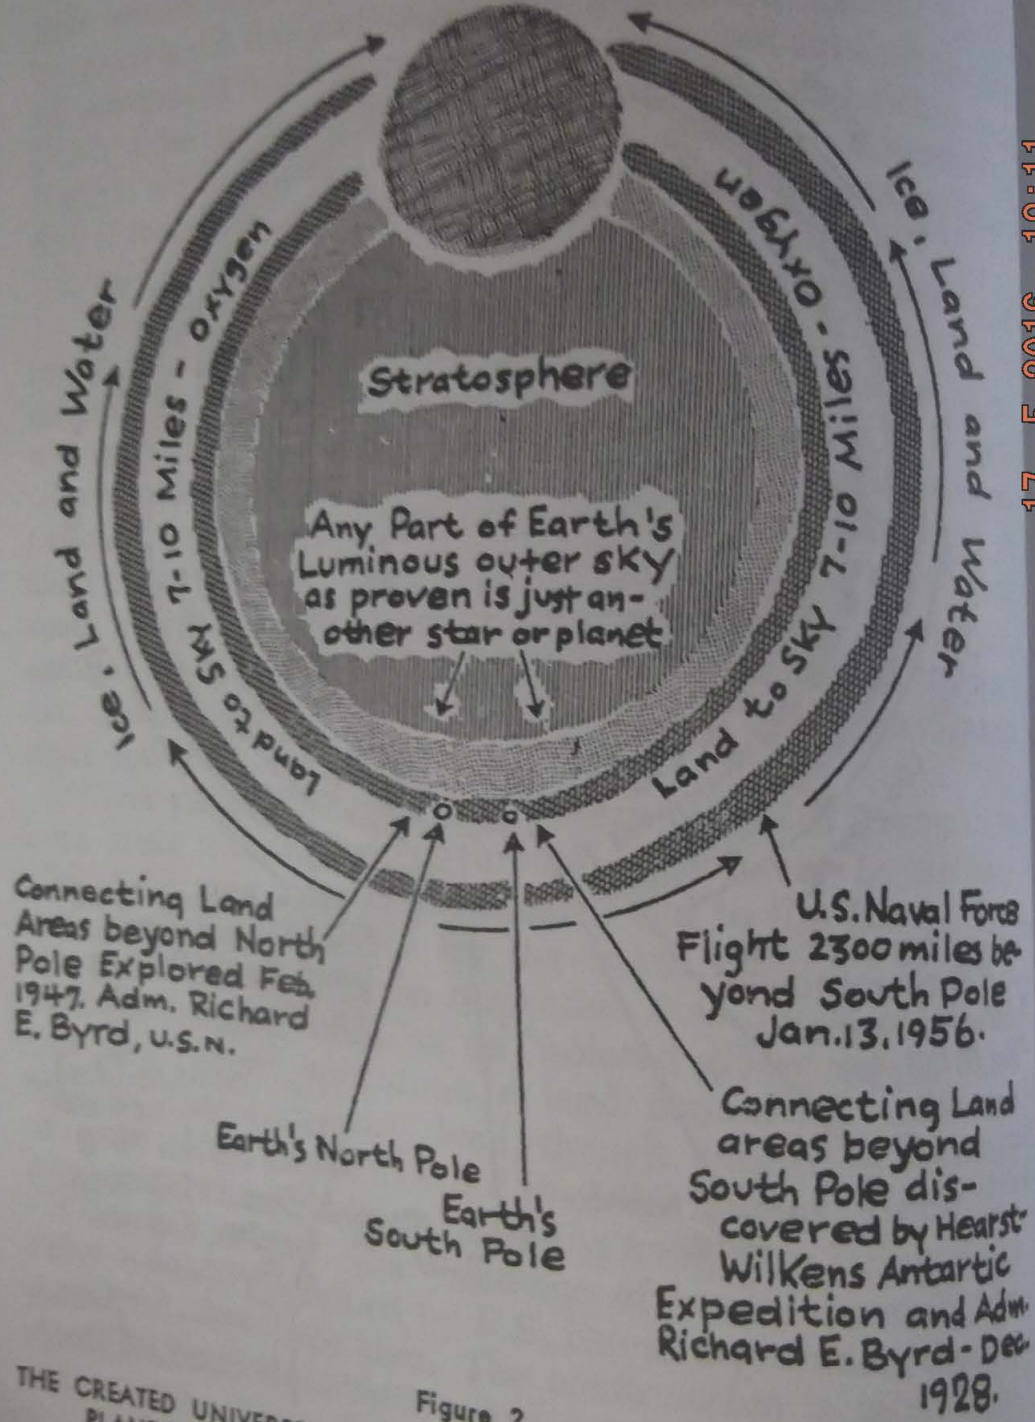 Ice, Land and Water
Land to Sky 7-10 Miles - Oxygen
Stratosphere
Any Part of Earth's
Luminous outer sky
as proven is just an-
other star or planet
Land to Sky 7-10 Miles - Oxygen
Ice, Land and Water
Connecting Land
Areas beyond North
Pole Explored Feb,
1947. Adm. Richard
E. Byrd, U.S.N.
U.S. Naval Force
Flight 2300 miles be-
yond South Pole
Jan.13,1956.
Earth's North Pole
Earth's
South Pole
Connecting Land
areas beyond
South Pole dis-
covered by Hearst-
Wilkens Antartic
Expedition and Adm.
Richard E. Byrd - Dec.
1928.
THE CREATED
Figure 2